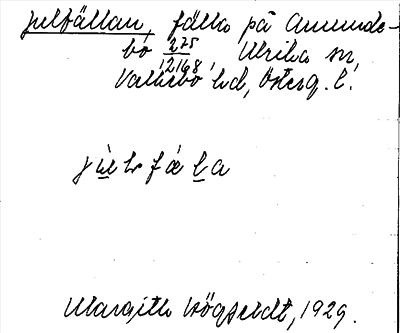 Julfällan, fälla på Amunde-
bo 275/12168, Ulrika sn,
Valkebo hd, Österg. l.
jùlfǽla
Margith Högfeldt, 1929.